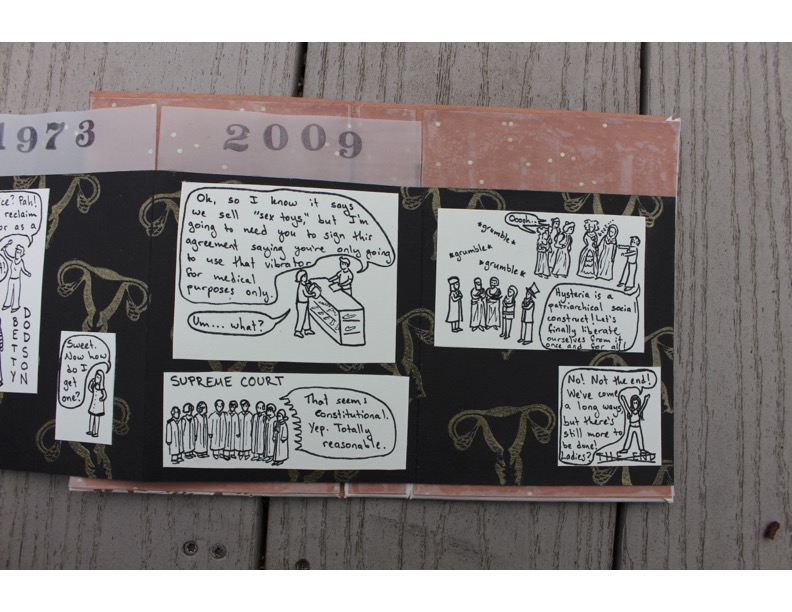 1973
2009
ice? Pah!
reclaim
or as a
BETTY
DODSON
Sweet.
Now how
do I
get
one?
Ok, so I know it says
we sell "sex toys," but I'm
going to need you to sign this
agreement saying you're only going
to use that vibrator
for medical
purposes only.
Um... what?
SUPREME COURT
That seems
constitutional.
Yep. Totally
reasonable.
*grumble*
*grumble*
*grumble*
Oooh...
Hysteria is a
patriarchical social
construct! Let's
finally liberate
ourselves from it
once and for all!
No! Not the end!
We've come
a long ways,
but there's
still more to
be done!
Ladies?
THE END